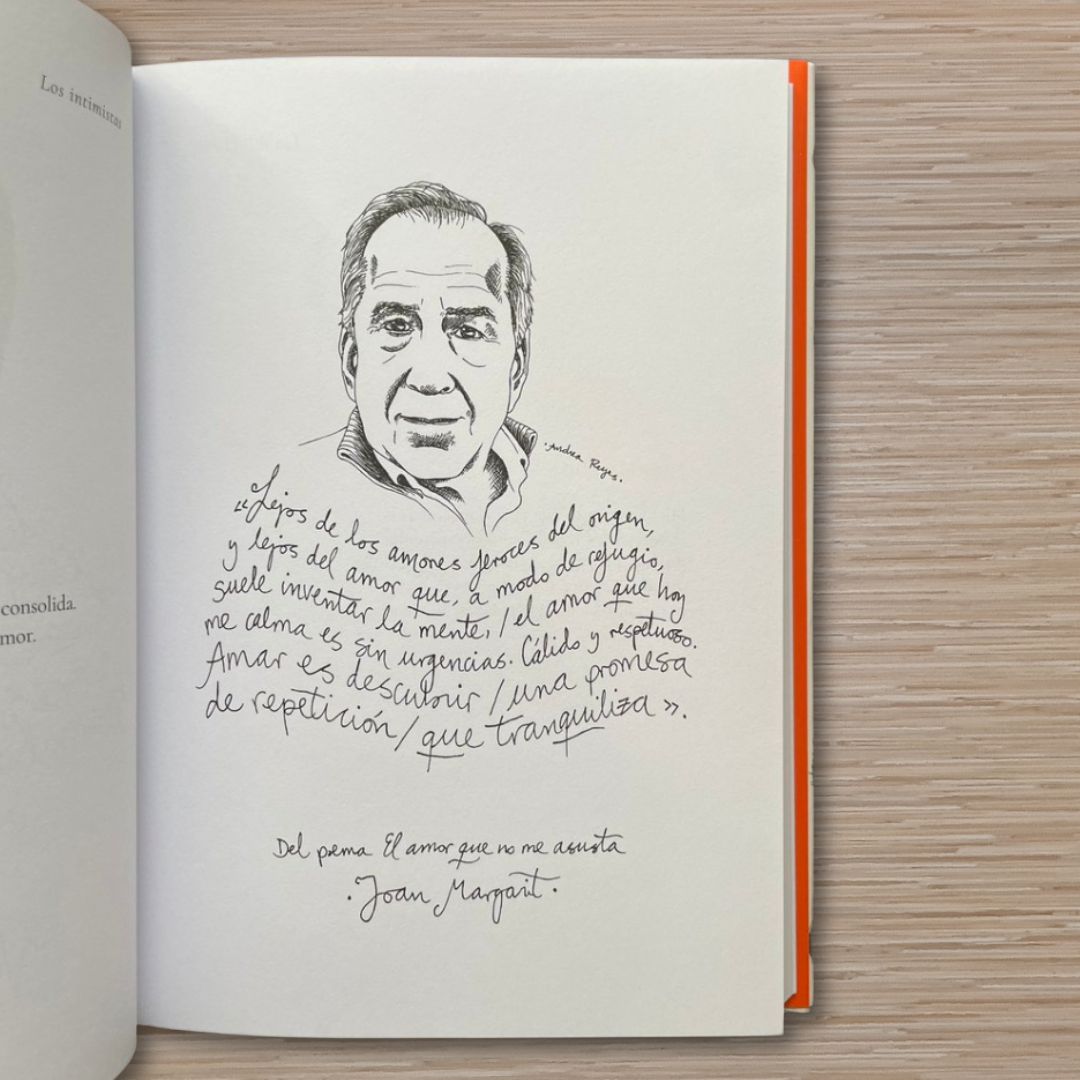 Los intimistas
consolida.
mor.
·Andrea Reyes.
«Lejos de los amores feroces del origen,
y lejos del amor que, a modo de refugio,
suele inventar la mente, / el amor que hoy
me calma es sin urgencias. Cálido y respetuoso.
Amar es descubrir / una promesa
de repetición / que tranquiliza».
Del poema El amor que no me asusta
·Joan Margarit·